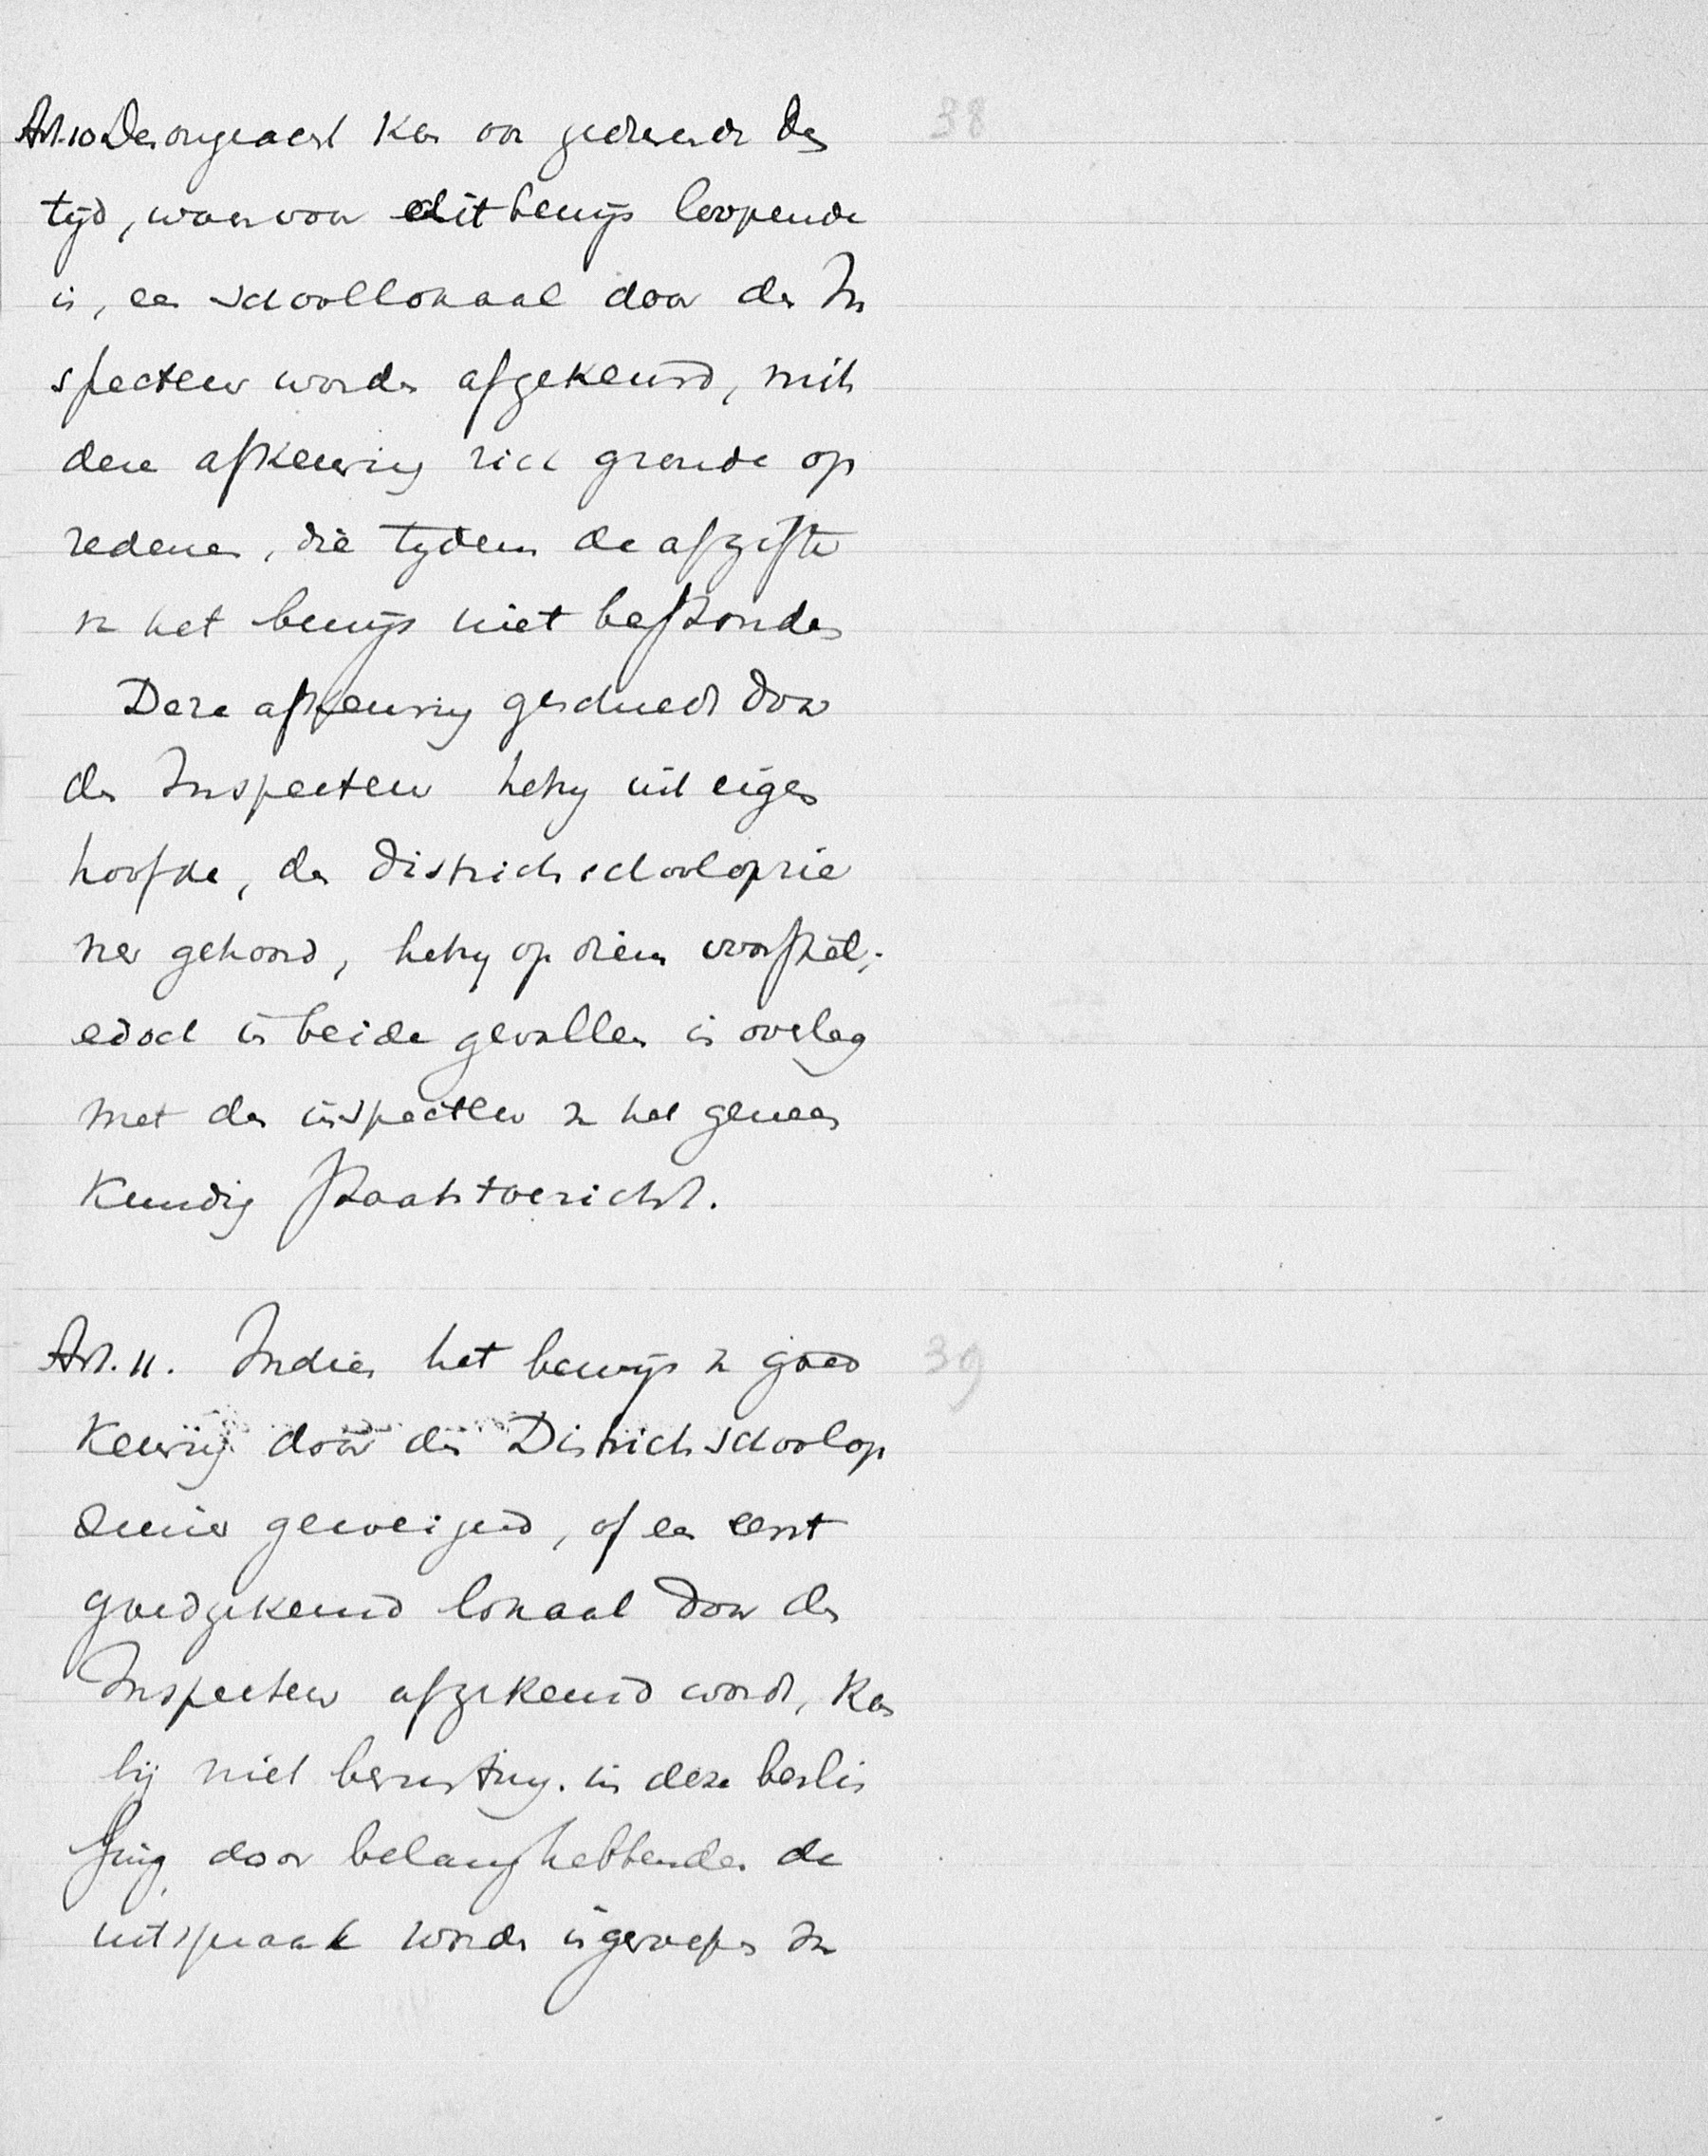 Art. 10 Desongeacht kan ook gedurende den
38
tijd, waarvoor dit bewijs loopende
is, een schoollokaal door den In
specteur worden afgekeurd, mits
deze afkeuring zich gronde op
redenen, die tijdens de afgifte
van het bewijs niet bestonden
Deze afkeuring geschiedt door
den Inspecteur hetzij uit eigen
hoofde, den districtsschoolopzie
ner gehoord, hetzij op diens voorstel;
edoch in beide gevallen in overleg
met den inspecteur van het genees
kundig staatstoezicht.
Art. 11. Indien het bewijs van goed
39
keuring door den Districtsschoolop
ziener geweigerd, of een eerst
goedgekeurd lokaal door den
Inspecteur afgekeurd wordt, kan
bij niet berusting in deze beslis
sing door belanghebbenden de
uitspraak worden ingeroepen van